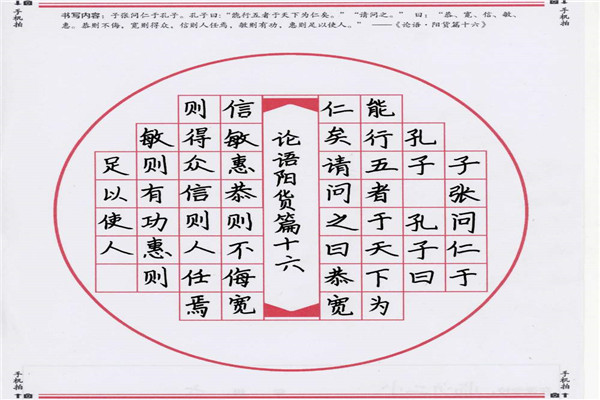 手机拍
手机拍
书写内容:子张问仁于孔子。孔子曰:“能行五者于天下为仁矣。” “请问之。” 曰:“恭、宽、信、敏、
惠。恭则不侮,宽则得众,信则人任焉,敏则有功,惠则足以使人。” ——《论语·阳货篇十六》
子张问仁于
孔子 孔子曰
能行五者于天下为
仁矣请问之曰恭宽
论语阳货篇十六
信敏惠恭则不侮宽
则得众信则人任焉
敏则有功惠则
足以使人
手机拍
手机拍